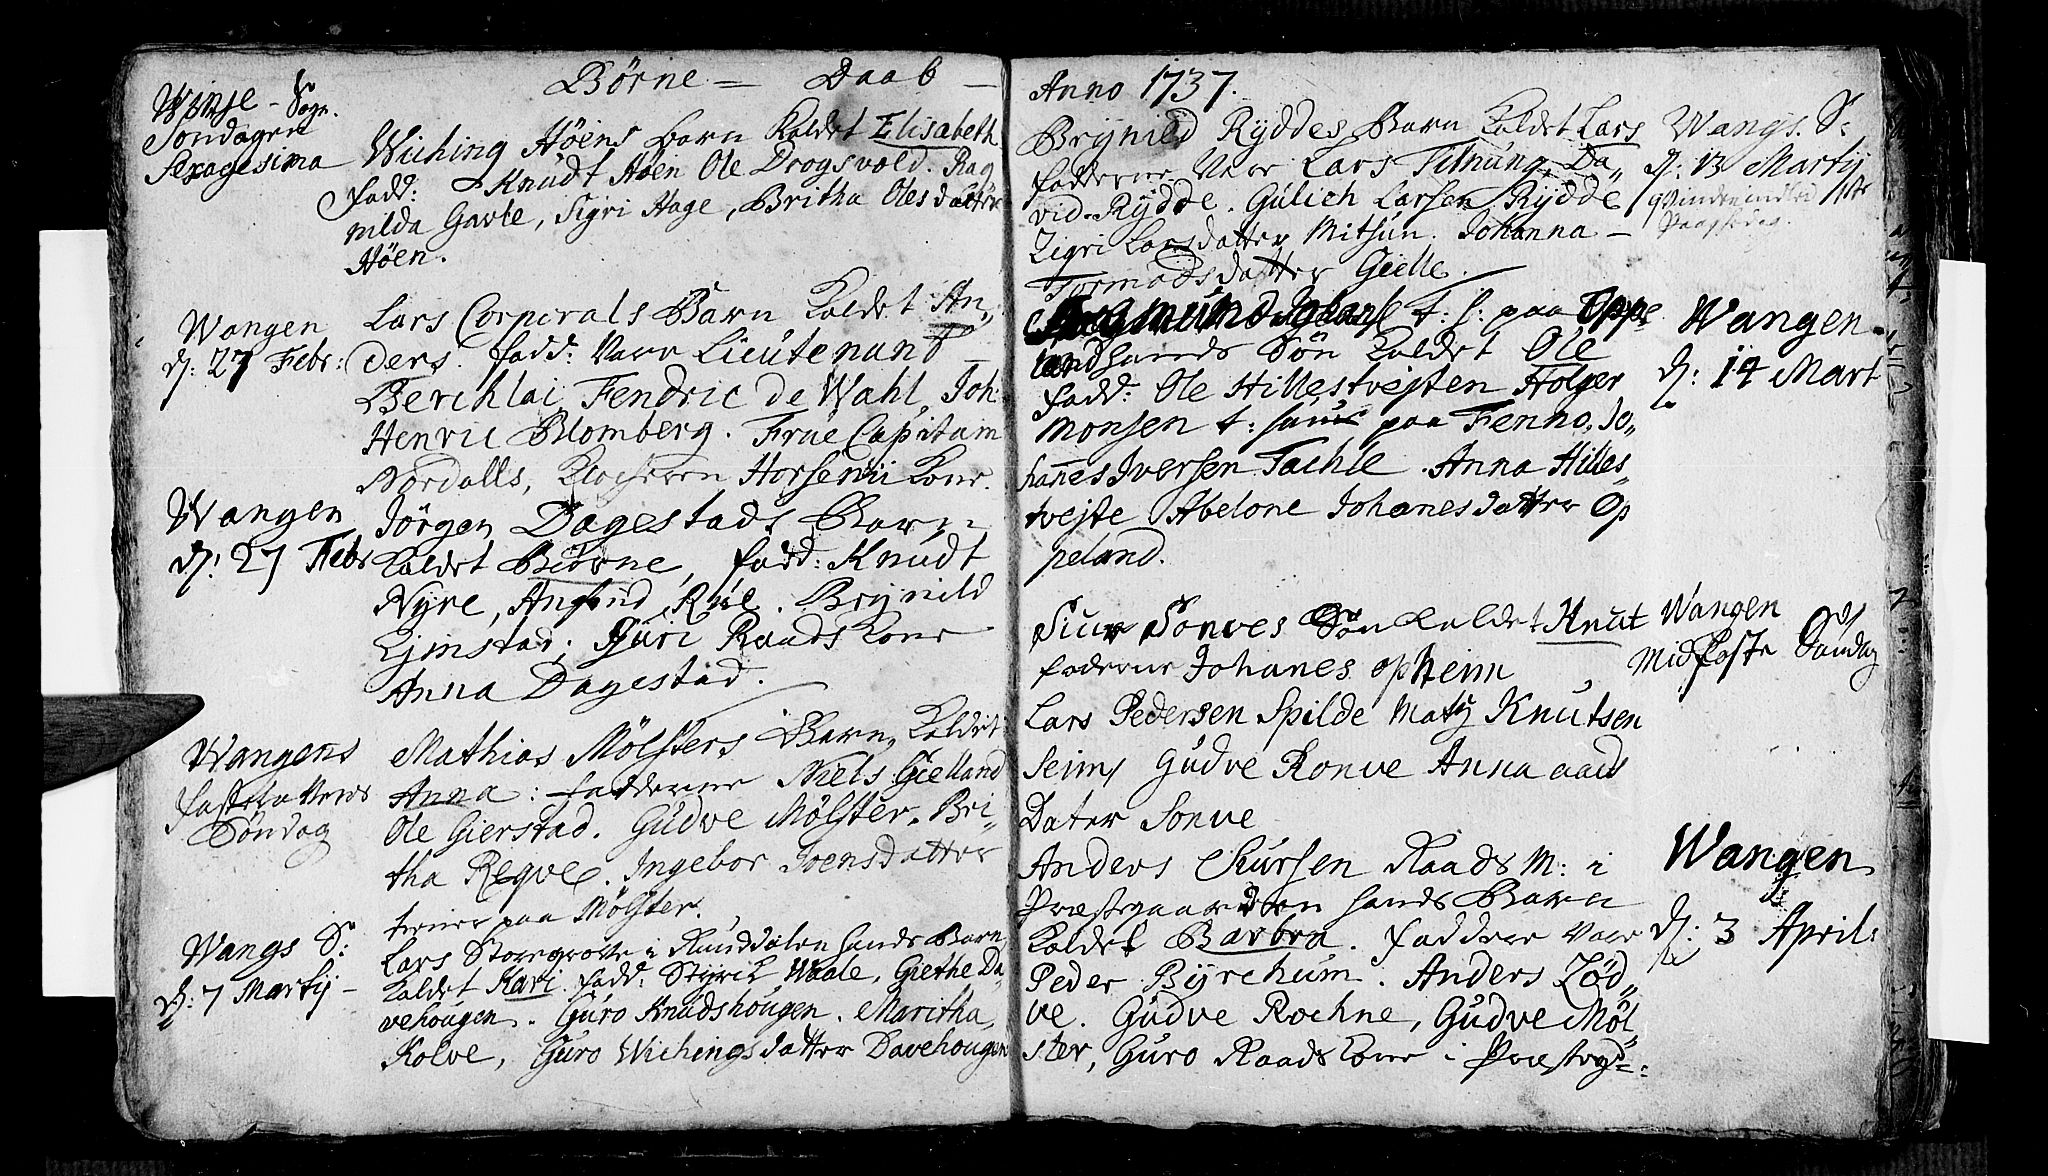 Børne = Daab —
Winje - Sogn.
Søndagen
Sexagesima
Wiching Høens barn Kaldet Elisabeth
fadd: Knudt Høen Ole Drogsvold. Rag
nilda Gavle, Sigri Hage, Britha Olesdatter
Høen.
Wangen
d: 27 Febr:
Lars Corporals Barn Kaldet An„
ders. fadd: Vare Lieutenant
Berchlai Fendric de Wahl, Joh:
Henric Blomberg. Frue Capitain
Nordalls, Klocheren Horsenii Kone.
Wangen
d: 27 Febr
Jørgen Dagestads Barn
Kaldet Biørne, fadd: Knudt
Nyre, Anfind Riise. Brynild
Gjinstad; Guri Raads Kone
Anna Dagestad.
Wangens
fastelavens
Søndag
Mathias Mølsters Barn, Kaldet
Anna: fadderne Niels Gielland
Ole Gierstad. Gudve Mølster. Bri„
tha Reqve. Ingebor Ivensdatter
tiener paa Mølster.
Wangs S:
d: 7 Martij —
Lars Storegrove i Raunddalen hands Barn
Kaldet Kari. fadd: Styrik Waale, Giethe Da„
vehougen. Guro Knudshougen. Maritha
Kolve, Guro Wichingsdatter Davehougen
Anno 1737.
Brynild Ryddes Barn Kaldet Lars
fadderne Vare Lars Tilnung, Da„
vid Rydde. Gulich Larsen Rydde
Zigri Larsdatter Mitsun. Johanna —
Tormodsdatter Gielle.
Wangs. S:
d: 13 Martij
qvinden indled 1ste
Paaskedag.
t: h: paa Oppe
land hands Søn Kaldet Ole
fadd: Ole Hillestvejten Holger
Monsen t: huus paa Fenno, Jo„
hannes Iversen Tachle. Anna Hilles„
tvejte Abelone Johanesdatter Op
peland.
Wangen
d: 14 Mart
Siur Sonves Søn Kaldet Knut
faderne Johanes opheim
Lars Pedersen Spilde Matz Knutsen
Seim Gudve Ronve Anna aads
Dater Sonve
Wangen
Midfaste Søndag
Anders Siursen Raads M: i
Præstgaarden hands Barn
Kaldet Barbra. faddere Vare
Peder Byrchum. Anders Zød„
ve. Gudve Rochne, Gudve Møl„
ster, Guro Raads Kone i Præstegd=:
Wangen
d: 3 April: